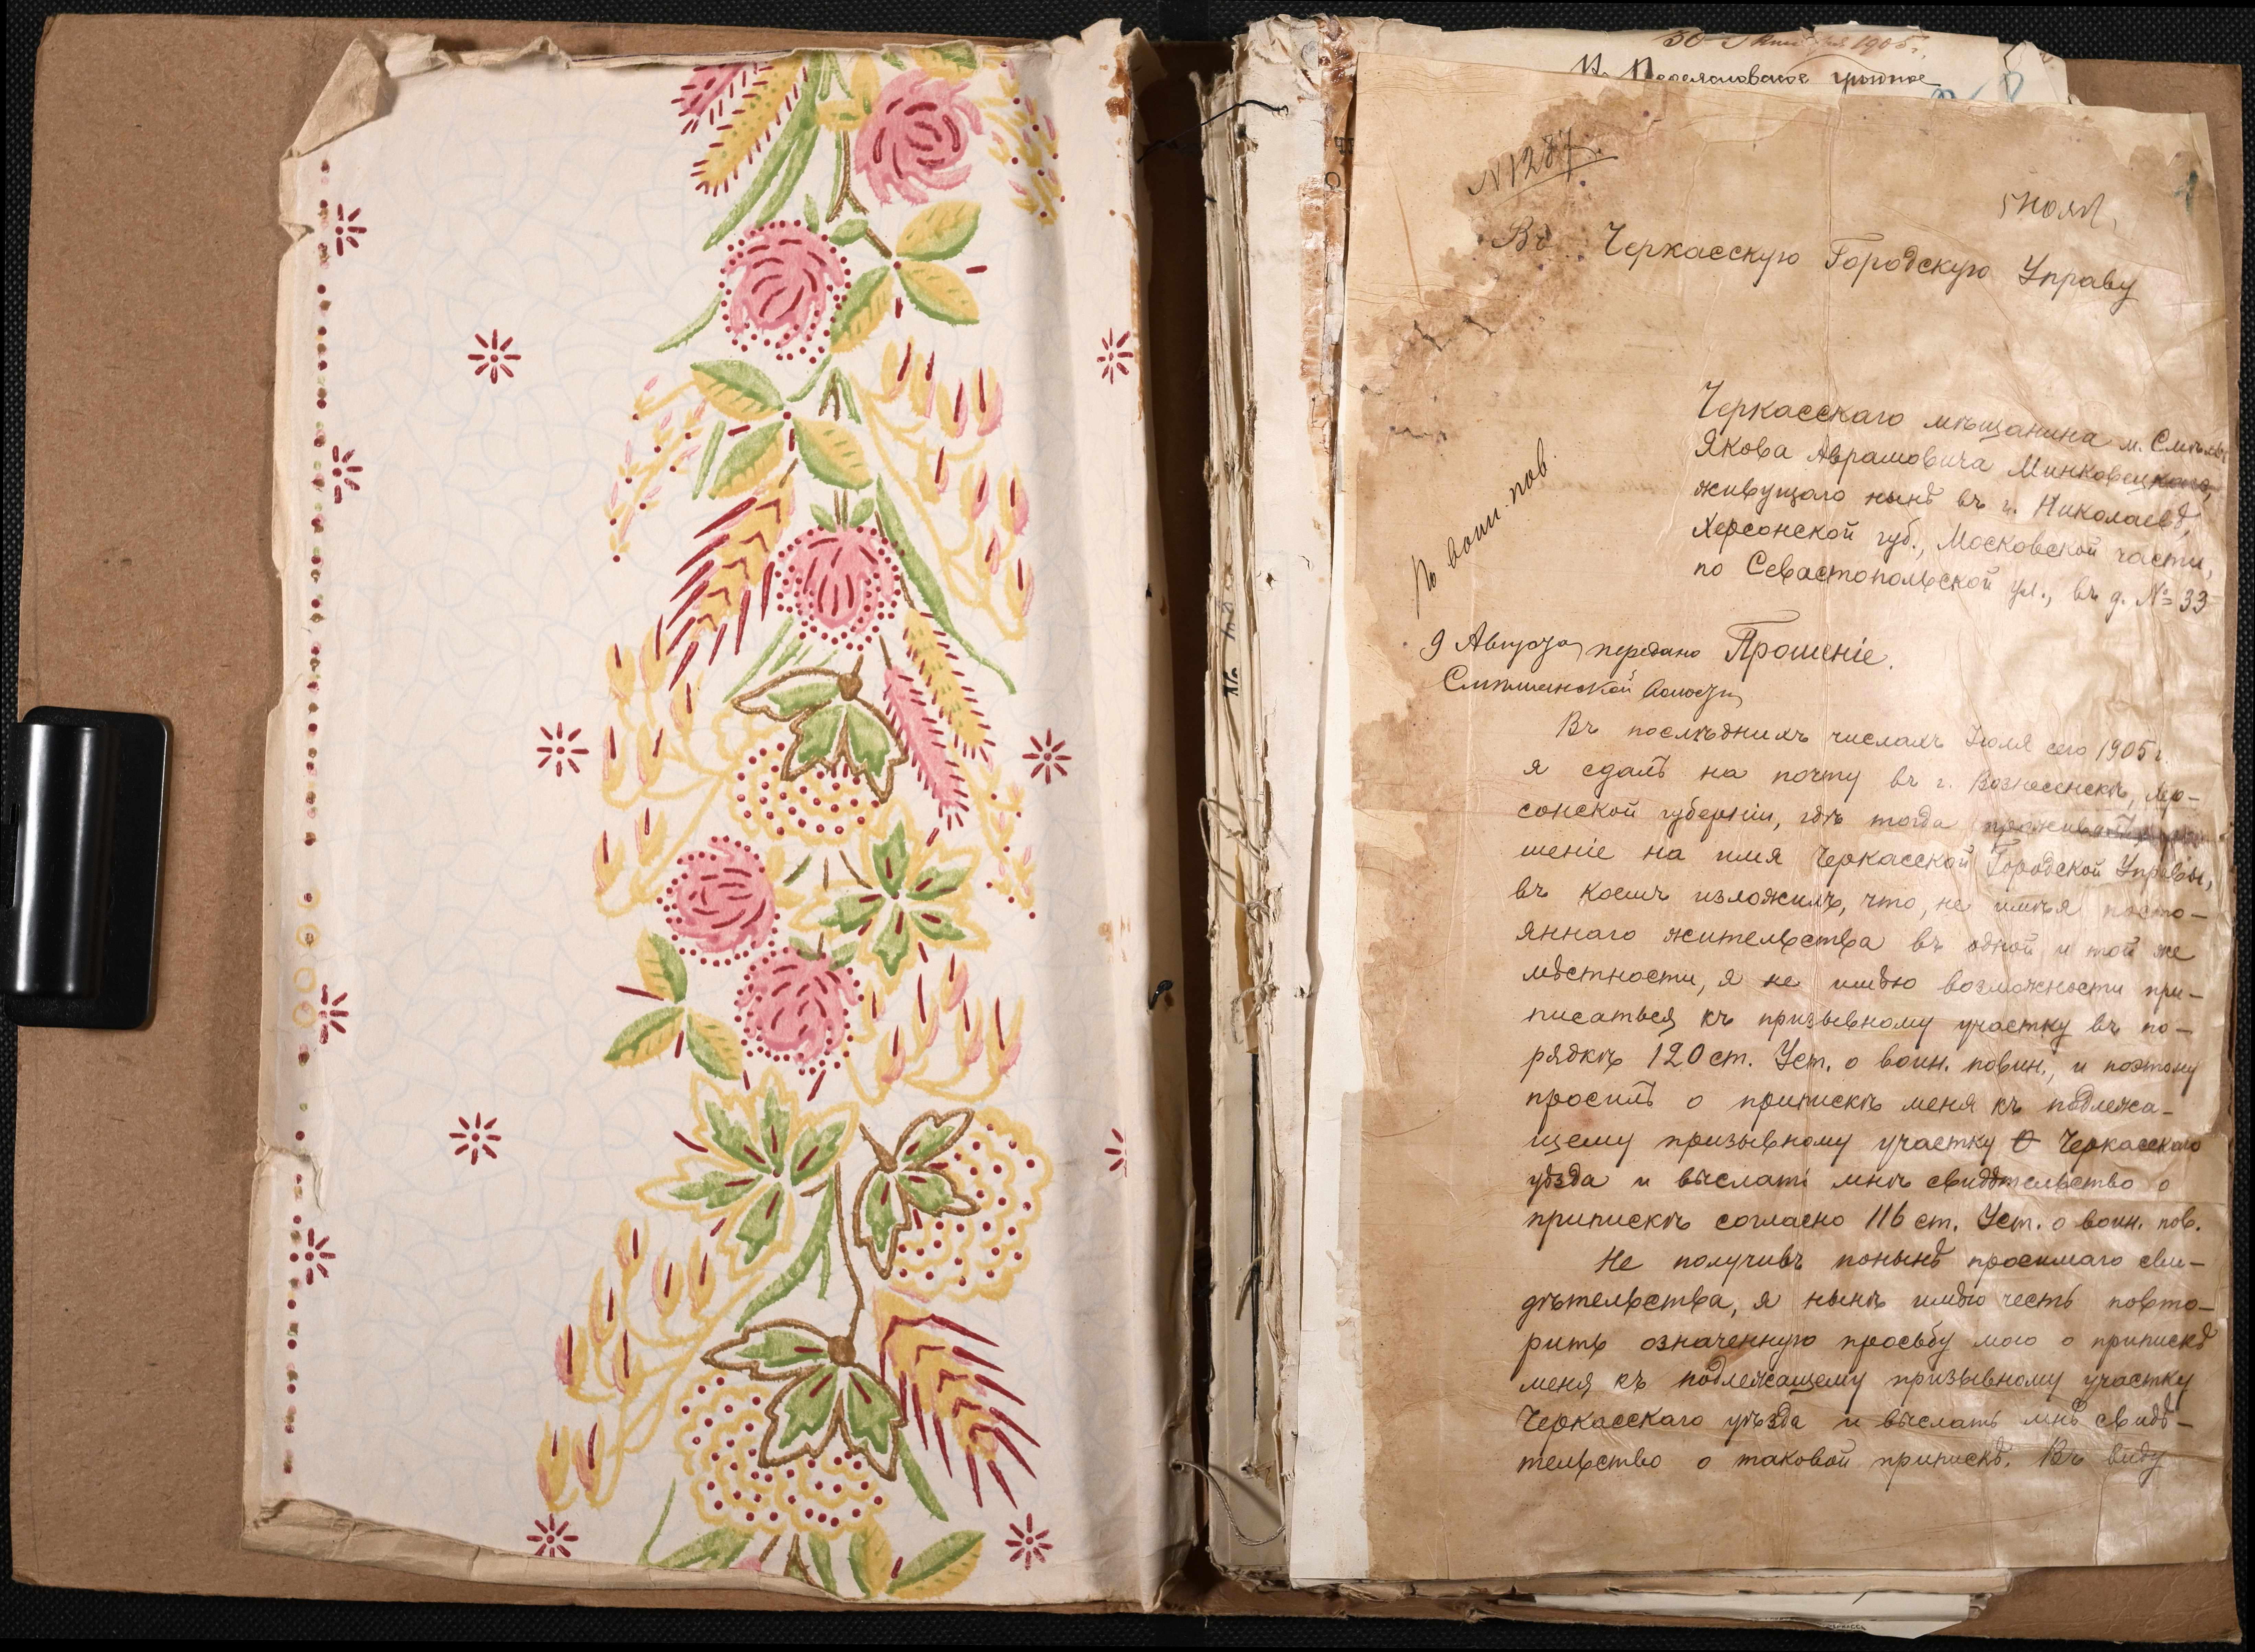 30 1905 г.
№ 1287.
5 нояб.
Въ Черкасскую Городскую Управу
Черкасскаго мѣщанина м. Смѣлы
Якова Аврамовича Минковецкаго,
живущаго нынѣ въ г. Николаевѣ,
Херсонской губ., Московской части,
по Севастопольской ул., въ д. № 33
По воин. пов.
9 Августа передано
Прошеніе.
Смѣлянской волости
Въ послѣднихъ числахъ Іюля сего 1905 г.
я сдалъ на почту въ г. Вознесенскѣ, Хер-
сонской губерніи, гдѣ тогда проживалъ, про-
шеніе на имя Черкасской Городской Управы,
въ коемъ изложилъ, что, не имѣя посто-
яннаго жительства въ одной и той же
мѣстности, я не имѣю возможности при-
писаться къ призывному участку въ по-
рядкѣ 120 ст. Уст. о воин. повин., и поэтому
просилъ о припискѣ меня къ подлежа-
щему призывному участку Черкасскаго
уѣзда и выслать мнѣ свидѣтельство о
припискѣ согласно 116 ст. Уст. о воин. пов.
Не получивъ понынѣ просимаго сви-
дѣтельства, я нынѣ имѣю честь повто-
рить означенную просьбу мою о припискѣ
меня къ подлежащему призывному участку
Черкасскаго уѣзда и выслать мнѣ свидѣ-
тельство о таковой припискѣ. Въ виду